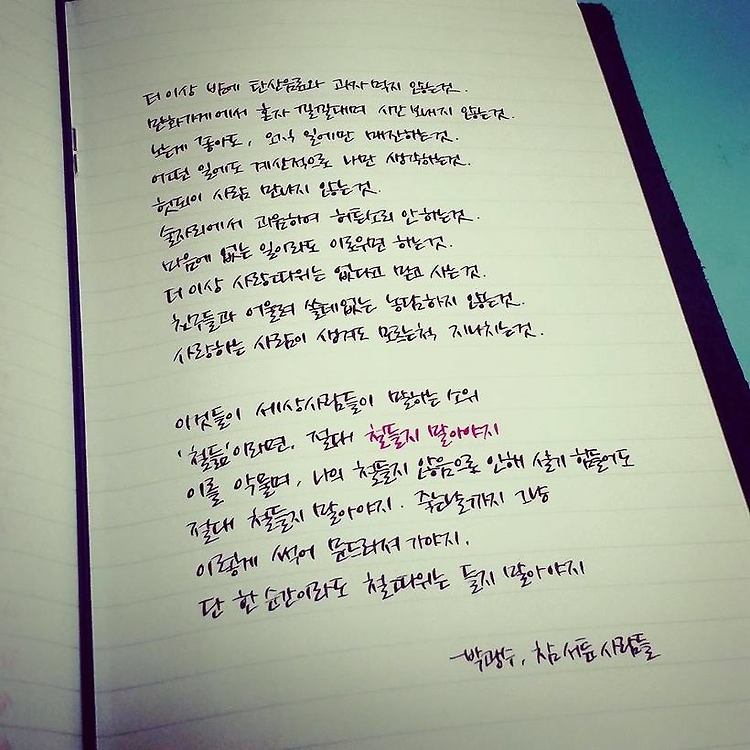 더 이상 밤에 탄산음료와 과자 먹지 않는것.
만화가게에서 혼자 낄낄대며 시간 보내지 않는것.
노는게 좋아도, 오직 일에만 매진하는것.
어떤 일에도 계산적으로 나만 생각하는것.
헛되이 사람 만나지 않는것.
술자리에서 과음하여 허튼소리 안하는것.
마음에 없는 일이라도 이로우면 하는것.
더 이상 사랑따위는 없다고 믿고 사는것.
친구들과 어울려 쓸데없는 농담하지 않는것.
사랑하는 사람이 생겨도 모르는척 지나치는것.
이것들이 세상사람들이 말하는 소위
'철듦'이라면, 절대 철들지 말아야지
이를 악물며, 나의 철들지 않음으로 인해 살기 힘들어도
절대 철들지 말아야지. 죽는날까지 그냥
이렇게 썩어 문드러져 가야지.
단 한 순간이라도 철따위는 들지 말아야지
-박광수, 참 서툰 사람들